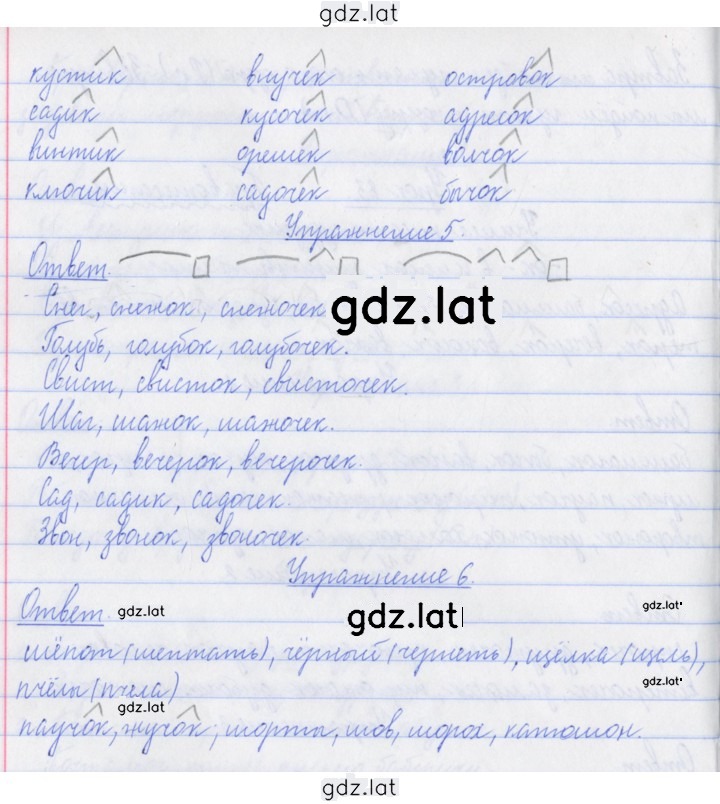 gdz.lat
кустик внучек островок
садик кусочек адресок
винтик орешек волчок
ключик садочек бычок
Упражнение 5.
Ответ.
Снег, снежок, снежочек
gdz.lat
Голубь, голубок, голубочек.
Свист, свисток, свисточек.
Шаг, шажок, шажочек.
Вечер, вечерок, вечерочек.
Сад, садик, садочек.
Звон, звонок, звоночек
Упражнение 6.
Ответ. gdz.lat gdz.lat gdz.lat
шёпот (шептать), чёрный (чернеть), щёлка (щель),
пчёлы (пчела) gdz.lat gdz.lat
паучок, жучок, шорты, шов, шорох, капюшон.
gdz.lat